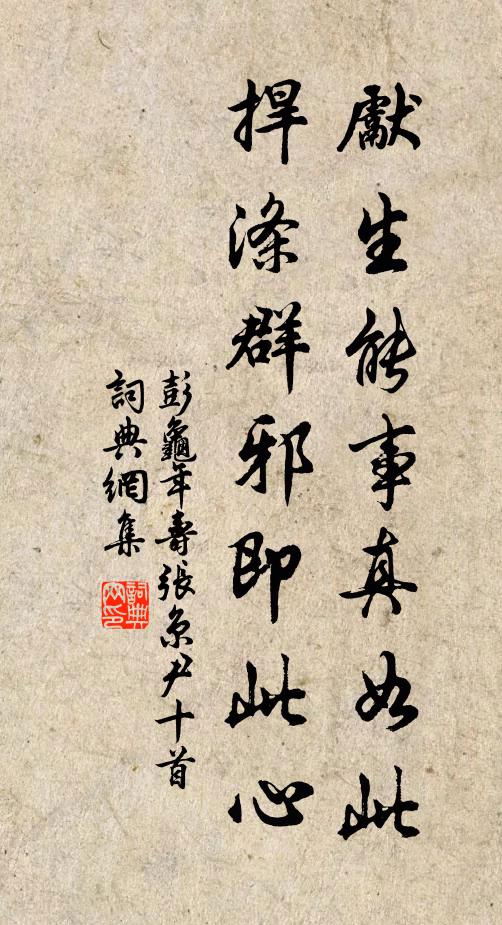 獻生能事真如此
捍滌群邪即此心
彭龜年壽張京尹十首
詞典網集
詞典網印